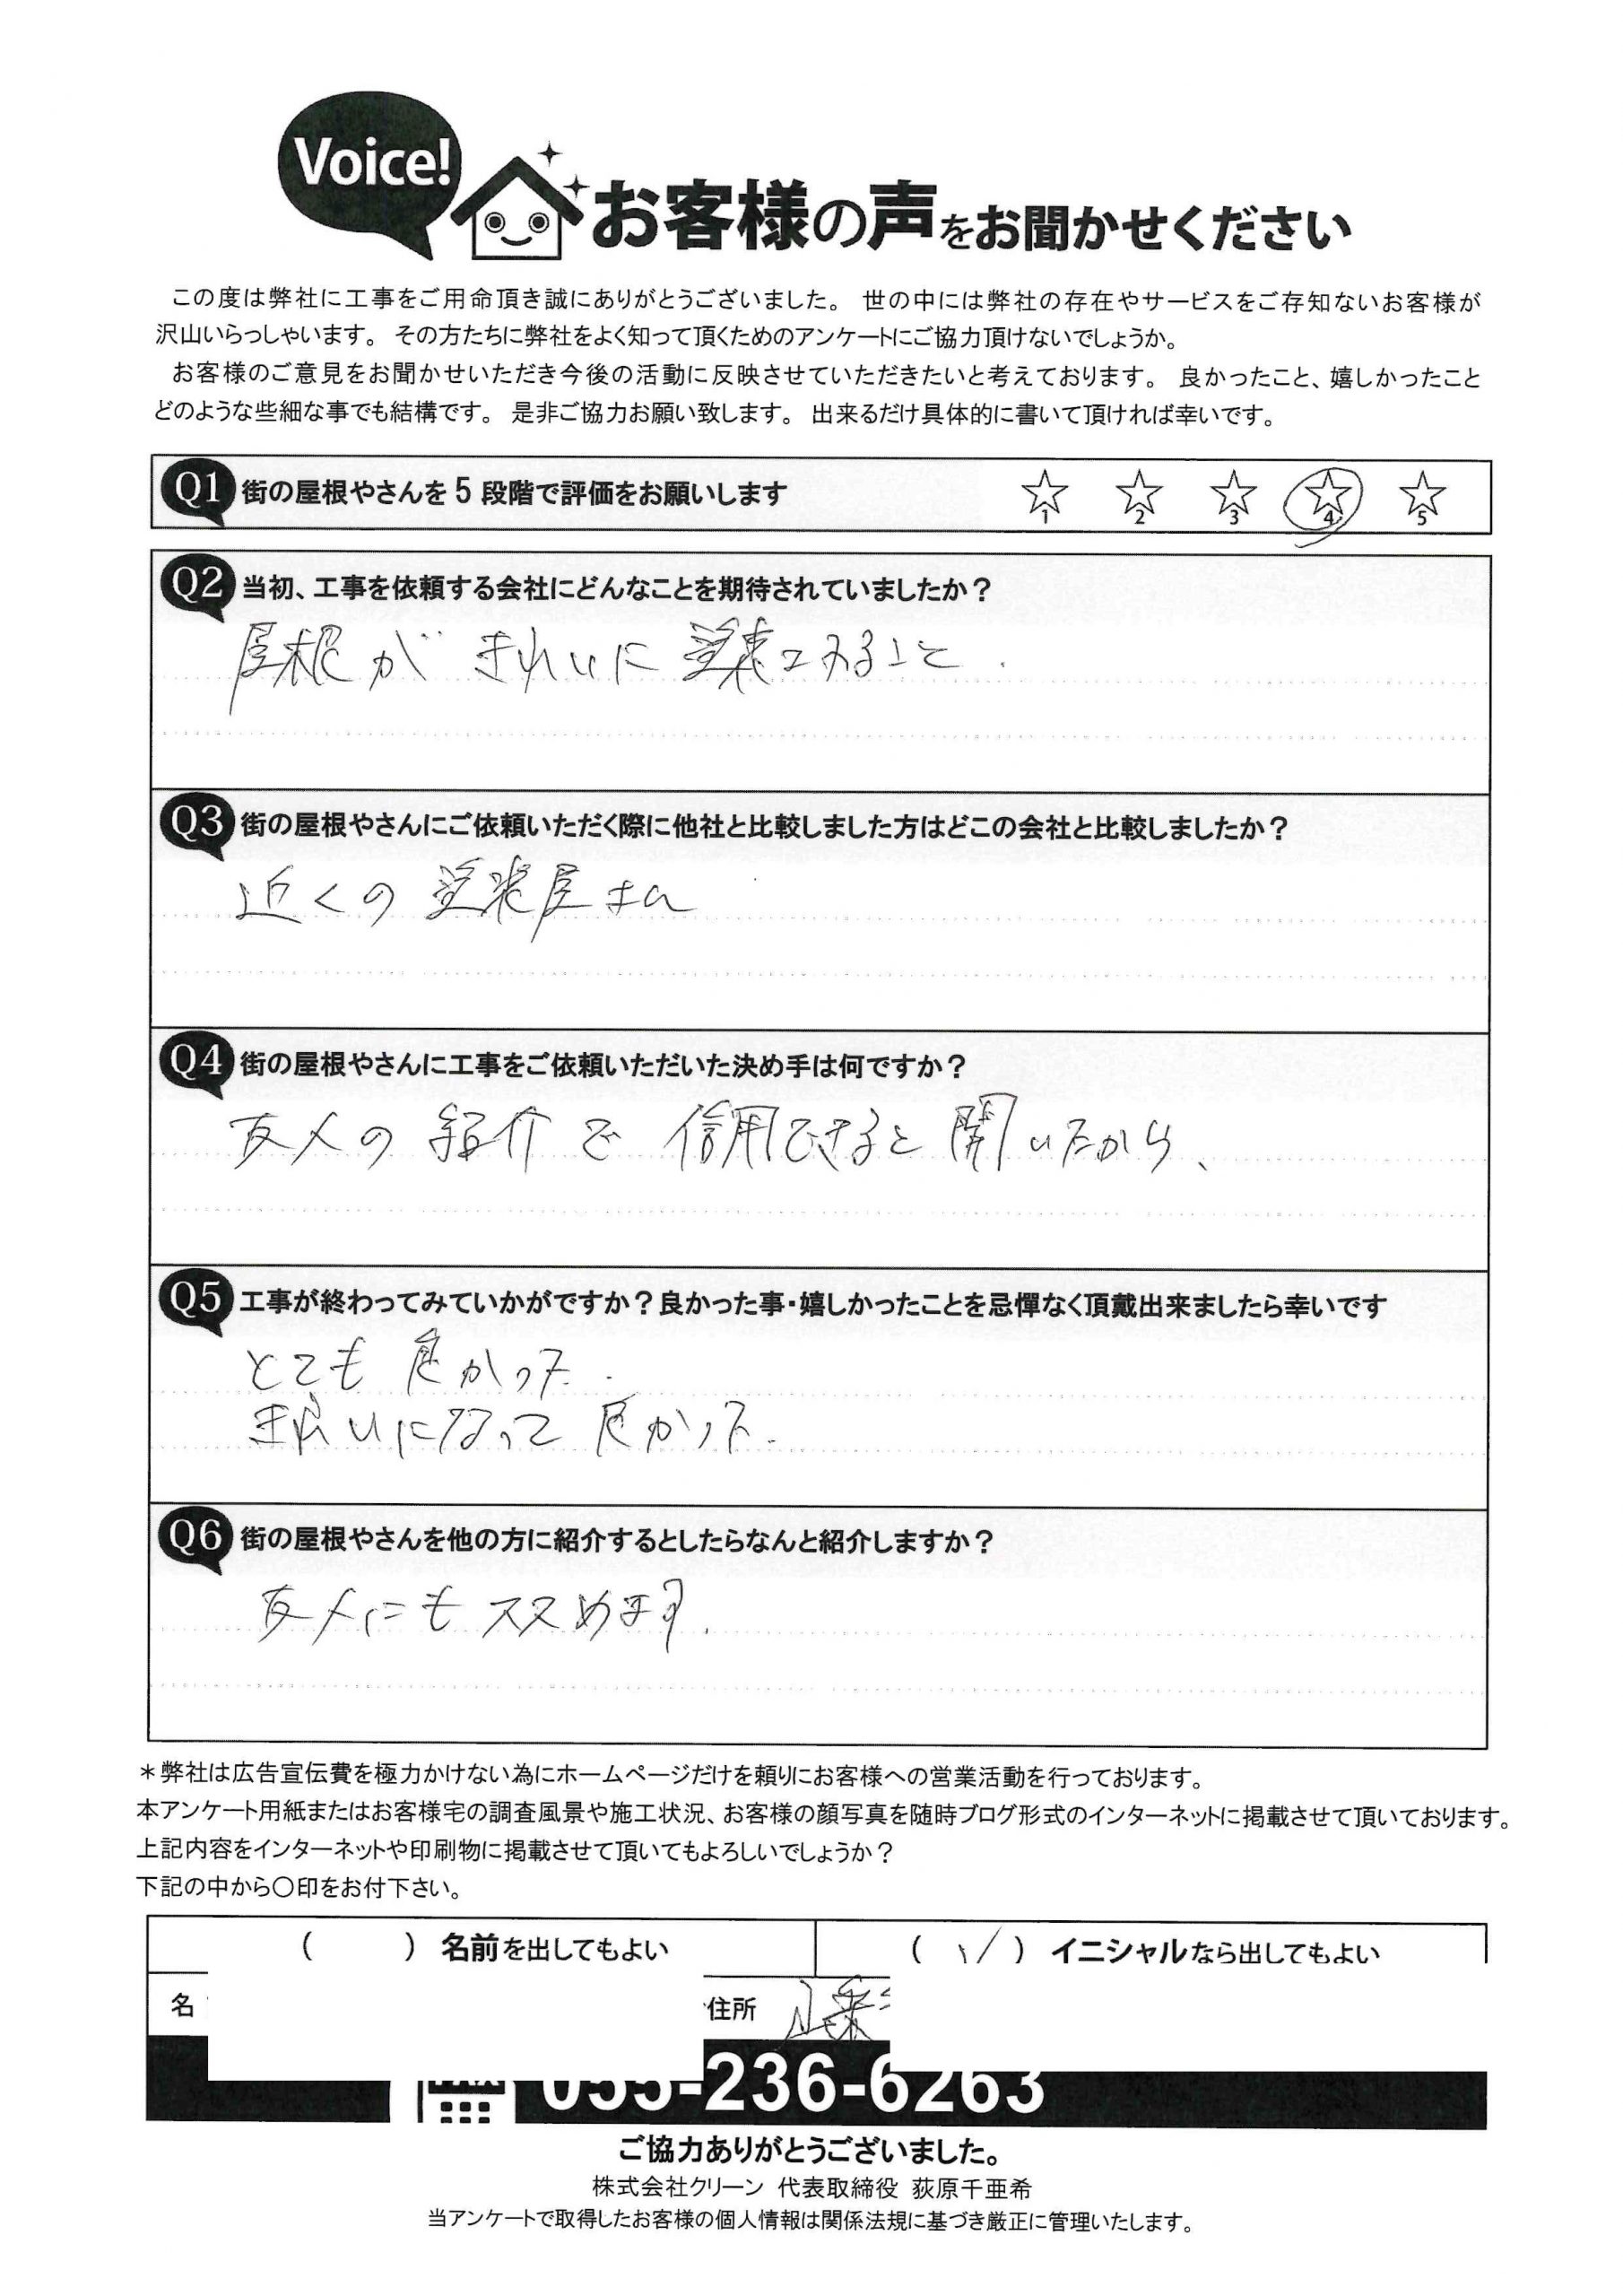 Voice!
お客様の声をお聞かせください
この度は弊社に工事をご用命頂き誠にありがとうございました。 世の中には弊社の存在やサービスをご存知ないお客様が
沢山いらっしゃいます。 その方たちに弊社をよく知って頂くためのアンケートにご協力頂けないでしょうか。
お客様のご意見をお聞かせいただき今後の活動に反映させていただきたいと考えております。 良かったこと、嬉しかったこと
どのような些細な事でも結構です。 是非ご協力お願い致します。 出来るだけ具体的に書いて頂ければ幸いです。
Q1 街の屋根やさんを5段階で評価をお願いします ☆1 ☆2 ☆3 ☆4 ☆5
Q2 当初、工事を依頼する会社にどんなことを期待されていましたか？
屋根が きれいに 塗装
Q3 街の屋根やさんにご依頼いただく際に他社と比較しました方はどこの会社と比較しましたか？
近くの 塗装屋さん
Q4 街の屋根やさんに工事をご依頼いただいた決め手は何ですか？
友人の 紹介で 信用できると聞いたから、
Q5 工事が終わってみていかがですか？良かった事・嬉しかったことを忌憚なく頂戴出来ましたら幸いです
とても 良かった.
きれいになって 良かった.
Q6 街の屋根やさんを他の方に紹介するとしたらなんと紹介しますか？
友人にも ススめます.
＊弊社は広告宣伝費を極力かけない為にホームページだけを頼りにお客様への営業活動を行っております。
本アンケート用紙またはお客様宅の調査風景や施工状況、お客様の顔写真を随時ブログ形式のインターネットに掲載させて頂いております。
上記内容をインターネットや印刷物に掲載させて頂いてもよろしいでしょうか？
下記の中から〇印をお付下さい。
（　　）名前を出してもよい （ ✓ ）イニシャルなら出してもよい
名 住所
055-236-6263
ご協力ありがとうございました。
株式会社クリーン 代表取締役 荻原千亜希
当アンケートで取得したお客様の個人情報は関係法規に基づき厳正に管理いたします。